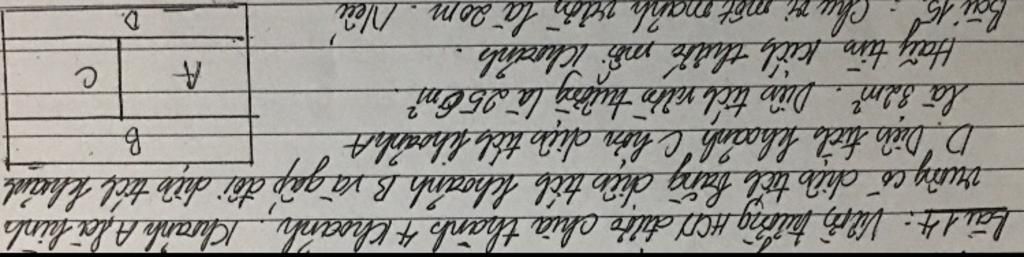 Bài 14: Vườn trường HCN được chia thành 4 khoảnh. Khoảnh A là hình
vuông có diện tích bằng diện tích khoảnh B và gấp đôi diện tích khoảnh
D. Diện tích khoảnh C hơn diện tích khoảnh A
là 32m². Diện tích vườn trường là 256m²
Hãy tìm kích thước mỗi khoảnh.
Bài 15: Chu vi một mảnh vườn là 20m. Nếu
B
A
C
D